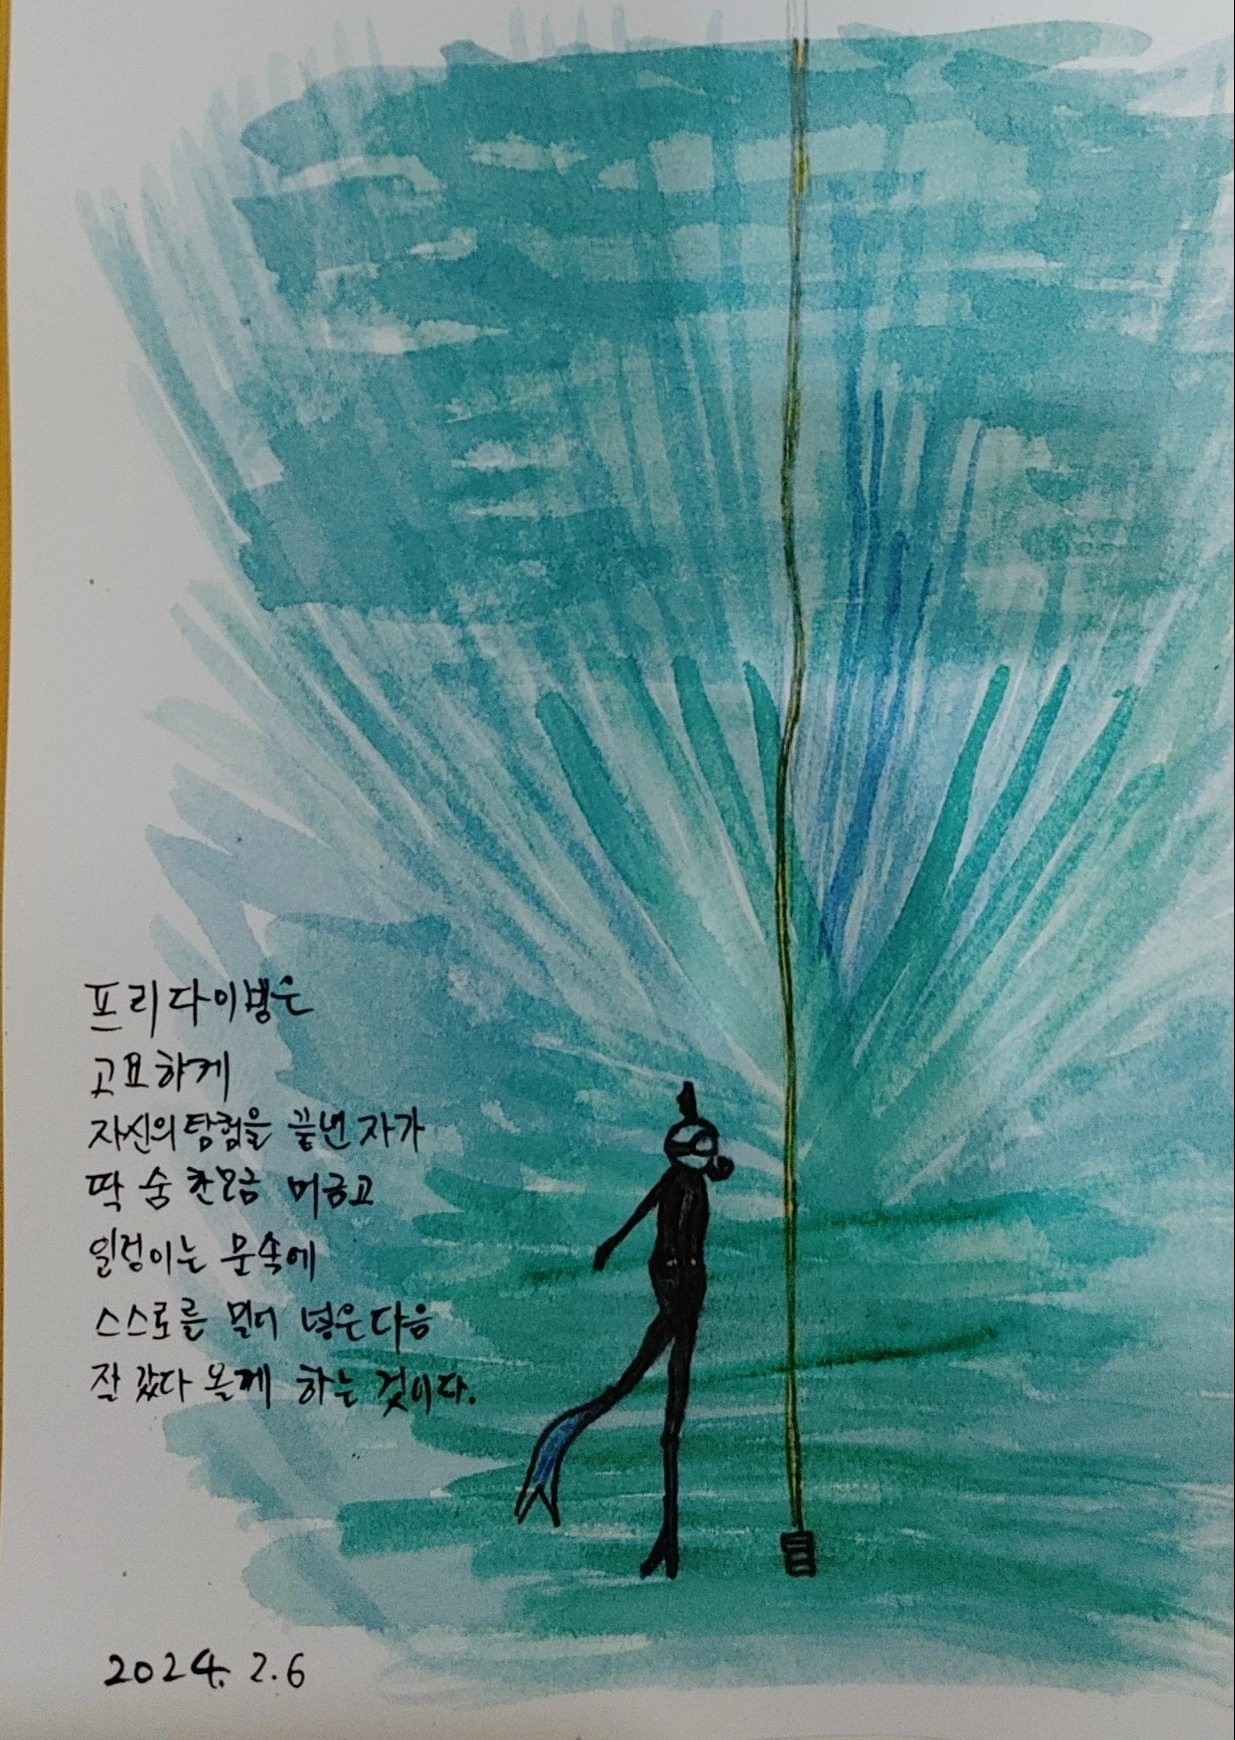 프리다이빙은
고요하게
자신의 탐험을 끝낸 자가
딱 숨 한모금 머금고
일렁이는 물속에
스스로를 밀어 넣은 다음
잘 갔다 올게 하는 것이다.
2024. 2. 6